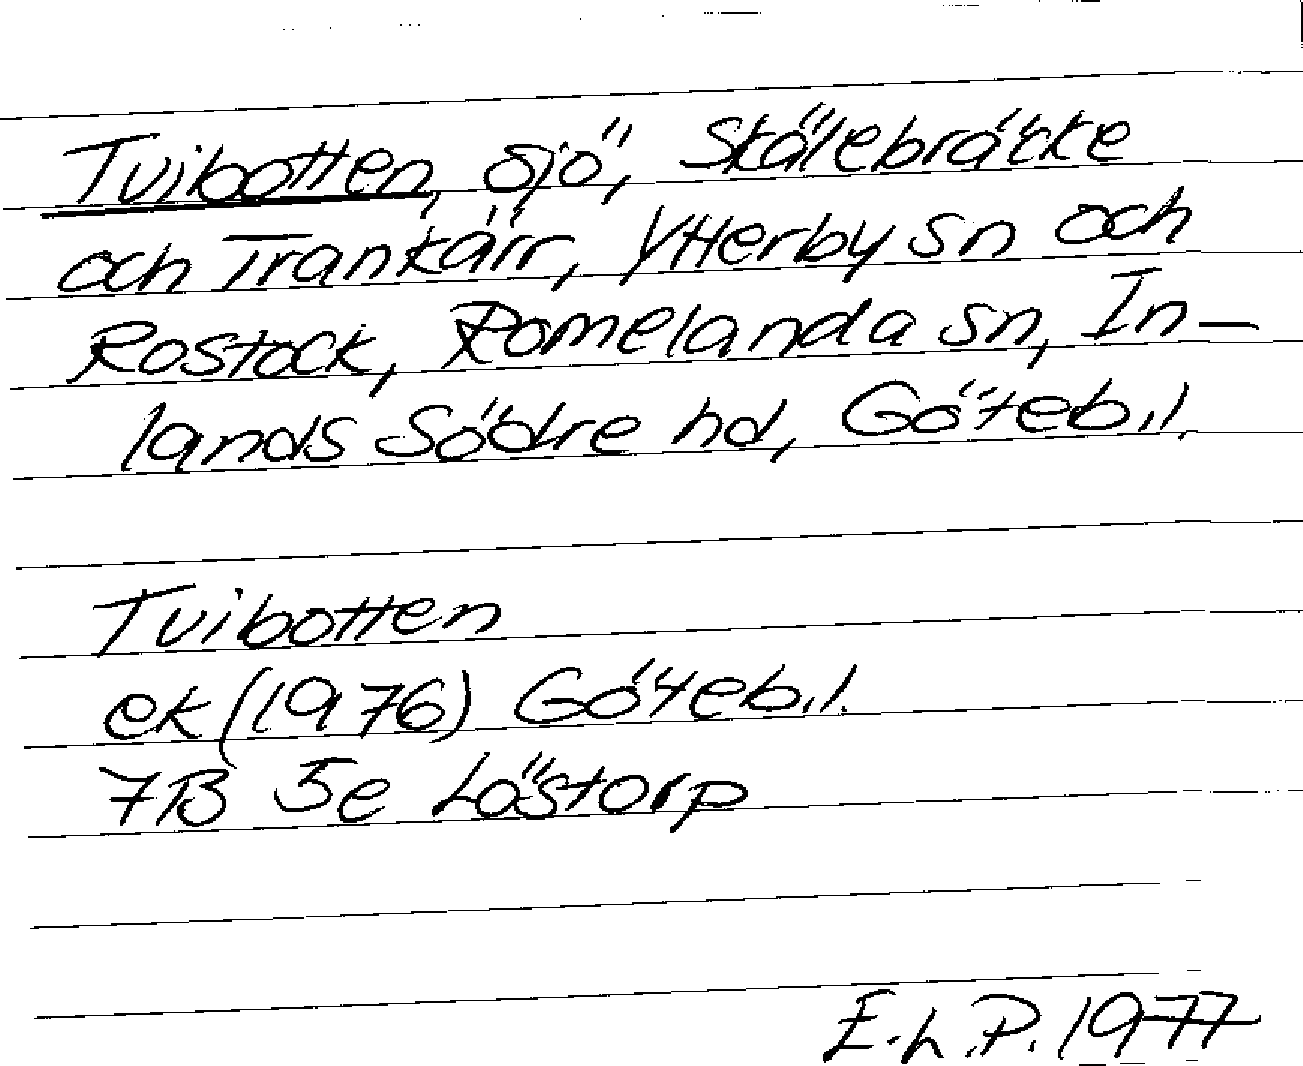 Tvibotten, sjö, Skälebräcke
och Trankärr, Ytterby sn och
Rostock, Romelanda sn, In-
lands Södre hd, Göteb.l.
Tvibotten
ek (1976) Göteb.l.
7B 5e Löstorp
E.L.P. 1977